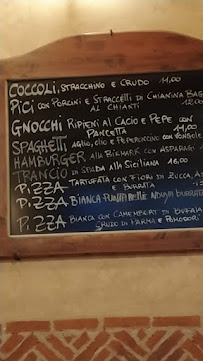 COCCOLI, STRACCHINO E CRUDO 11,00
PICI CON PORCINI E STRACCETTI DI CHIANINA BAG
AL CHIANTI 12,00
GNOCCHI RIPIENI AL CACIO E PEPE CON
PANCETTA 11,00
SPAGHETTI, AGLIO, OLIO E PEPERONCINO CON VONGOLE
HAMBURGER ALLA BISMARK CON ASPARAGI
TRANCIO DI SPADA ALLA SICILIANA 16,00
PIZZA TARTUFATA CON FIORI DI ZUCCA, A
E BURRATA
PIZZA BIANCA NDUJA BURRATA
PIZZA BIANCA CON CAMEMBERT DI BUFALA
CRUDO DI PARMA E POMODORI